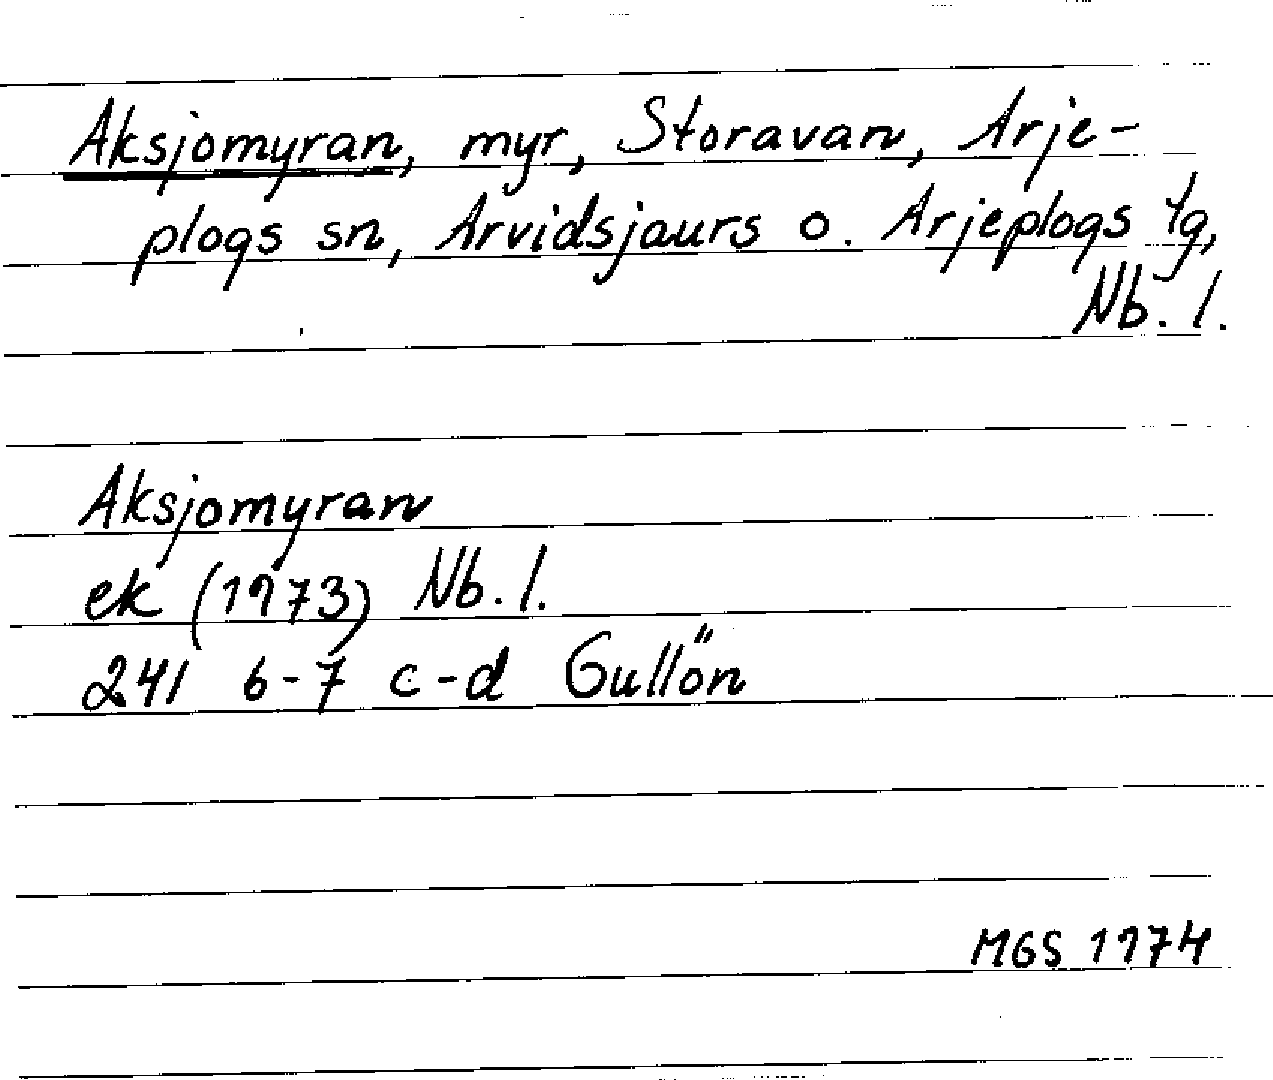 Aksjomyran, myr, Storavan, Arje-
plogs sn, Arvidsjaurs o. Arjeplogs tg,
Nb. l.
Aksjomyran
ek (1973) Nb. l.
241 6-7 c-d Gullön
MGS 1974